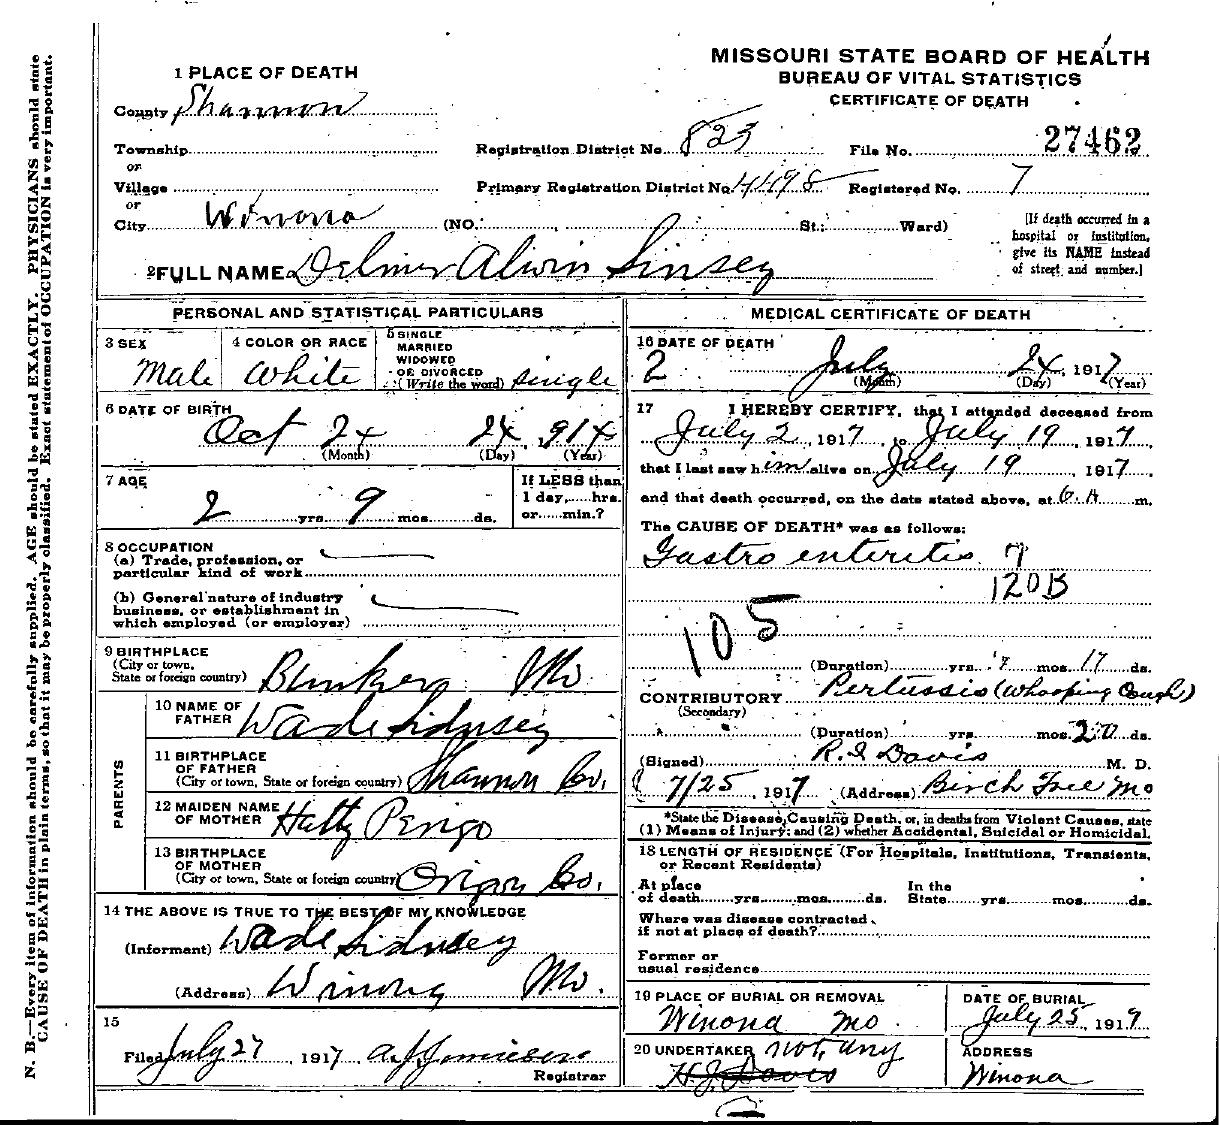 MISSOURI STATE BOARD OF HEALTH
BUREAU OF VITAL STATISTICS
CERTIFICATE OF DEATH
1 PLACE OF DEATH
County Shannon
Township
Registration District No. 823
File No. 27462
or
Village
Primary Registration District No. 4498
Registered No. 7
or
City Winona
(NO. St.; Ward)
[If death occurred in a
hospital or institution,
give its NAME instead
of street and number.]
2 FULL NAME Delmer Alwin Linsey
PERSONAL AND STATISTICAL PARTICULARS
3 SEX
Male
4 COLOR OR RACE
White
5 SINGLE
MARRIED
WIDOWED
OR DIVORCED
(Write the word) single
6 DATE OF BIRTH
Oct 24 24, 1914
(Month) (Day) (Year)
7 AGE
2 yrs. 9 mos. ds.
If LESS than
1 day, hrs.
or min.?
8 OCCUPATION
(a) Trade, profession, or
particular kind of work
(b) General nature of industry
business, or establishment in
which employed (or employer)
9 BIRTHPLACE
(City or town,
State or foreign country) Mo
PARENTS
10 NAME OF
FATHER Wade Lidnsey
11 BIRTHPLACE
OF FATHER
(City or town, State or foreign country) Shannon Co.
12 MAIDEN NAME
OF MOTHER Hatty Pengo
13 BIRTHPLACE
OF MOTHER
(City or town, State or foreign country) Origon Co.
14 THE ABOVE IS TRUE TO THE BEST OF MY KNOWLEDGE
(Informant) Wade Lidnsey
(Address) Winona Mo.
15
Filed July 27, 1917
Registrar
MEDICAL CERTIFICATE OF DEATH
16 DATE OF DEATH
2 July 24, 1917
(Month) (Day) (Year)
17 I HEREBY CERTIFY, that I attended deceased from
July 2, 1917, to July 19, 1917
that I last saw him alive on July 19, 1917.
and that death occurred, on the date stated above, at 6 A m.
The CAUSE OF DEATH* was as follows:
Gastro enteritis
120B
105
(Duration) yrs. mos. 17 ds.
CONTRIBUTORY Pertussis (Whooping Cough)
(Secondary)
(Duration) yrs. mos. 20 ds.
(Signed) R. I Davis M. D.
7/25, 1917 (Address) Birch Tree Mo
*State the Disease Causing Death, or, in deaths from Violent Causes, state
(1) Means of Injury; and (2) whether Accidental, Suicidal or Homicidal.
18 LENGTH OF RESIDENCE (For Hospitals, Institutions, Transients,
or Recent Residents)
At place
of death yrs. mos. ds.
In the
State yrs. mos. ds.
Where was disease contracted
if not at place of death?
Former or
usual residence
19 PLACE OF BURIAL OR REMOVAL
Winona Mo
DATE OF BURIAL
July 25, 1917
20 UNDERTAKER not any
H. J. Davis
ADDRESS
Winona
N. B.—Every item of information should be carefully supplied. AGE should be stated EXACTLY. PHYSICIANS should state
CAUSE OF DEATH in plain terms, so that it may be properly classified. Exact statement of OCCUPATION is very important.